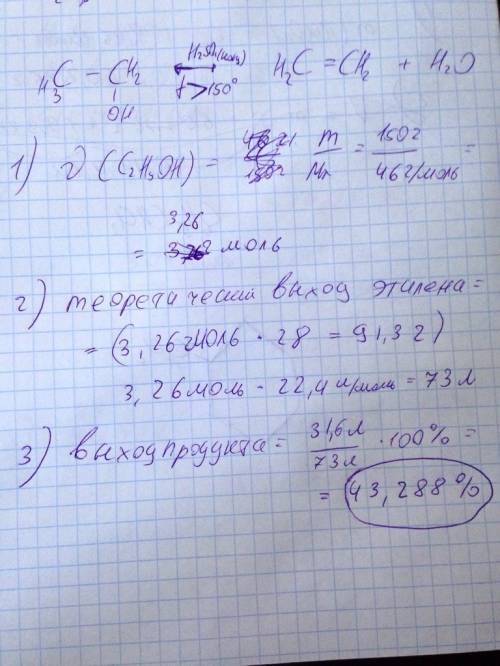 H₂SO₄(конц)
H₃C – CH₂ ⟷ H₂C = CH₂ + H₂O
OH t>150°
1) ν (C₂H₅OH) = m/Mr = 150г/46г/моль =
= 3,26 моль
2) теоретический выход этилена =
= (3,26 моль · 28 = 91,3 г)
3,26 моль · 22,4 л/моль = 73 л
3) выход продукта = 31,6л/73л · 100% =
= 43,288%